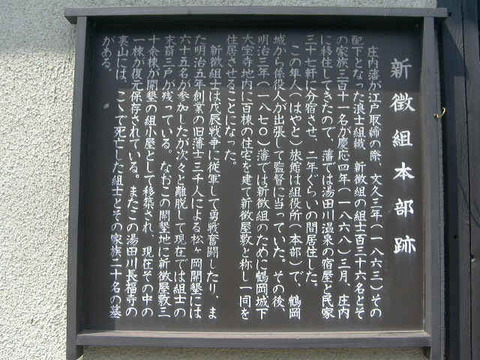 新徴組本部跡
庄内藩が江戸取締の際、文久三年(一八六三)その
配下となった浪士組織、新徴組の組士百三十六名とそ
の家族三百十一名が慶応四年(一八六八)三月、庄内
に移住してきたので、藩では湯田川温泉の宿屋と民家
三十七軒に分宿させ、二年ぐらいの間居住した。
この隼人(はやと)旅館は組役所(本部)で、鶴岡
城から係役人が出張して監督に当っていた。その後、
明治三年(一八七〇)藩では新徴組のために鶴岡城下
大宝寺地内に百棟の住宅を建て新徴屋敷と称し一同を
住居させることになった。
新徴組士は戊辰戦争に従軍して勇戦奮闘したり、ま
た明治五年創業の旧藩士三千人による松ヶ岡開墾には
六十五名が参加したが次々と離脱して現在では組士の
末裔三戸が残っている。なおこの開墾地に新徴屋敷三
十余棟が開墾の組小屋として移築され、現在その中の
一棟が復元保存されている。またこの湯田川長福寺の
裏山には、ここで死亡した組士とその家族二十名の墓
がある。